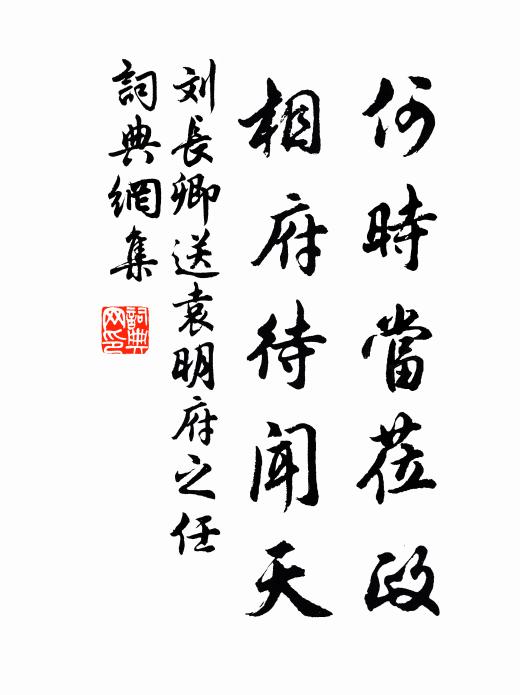 何時當莅政
相府待聞天
刘長卿送袁明府之任
詞典網集
詞典网印